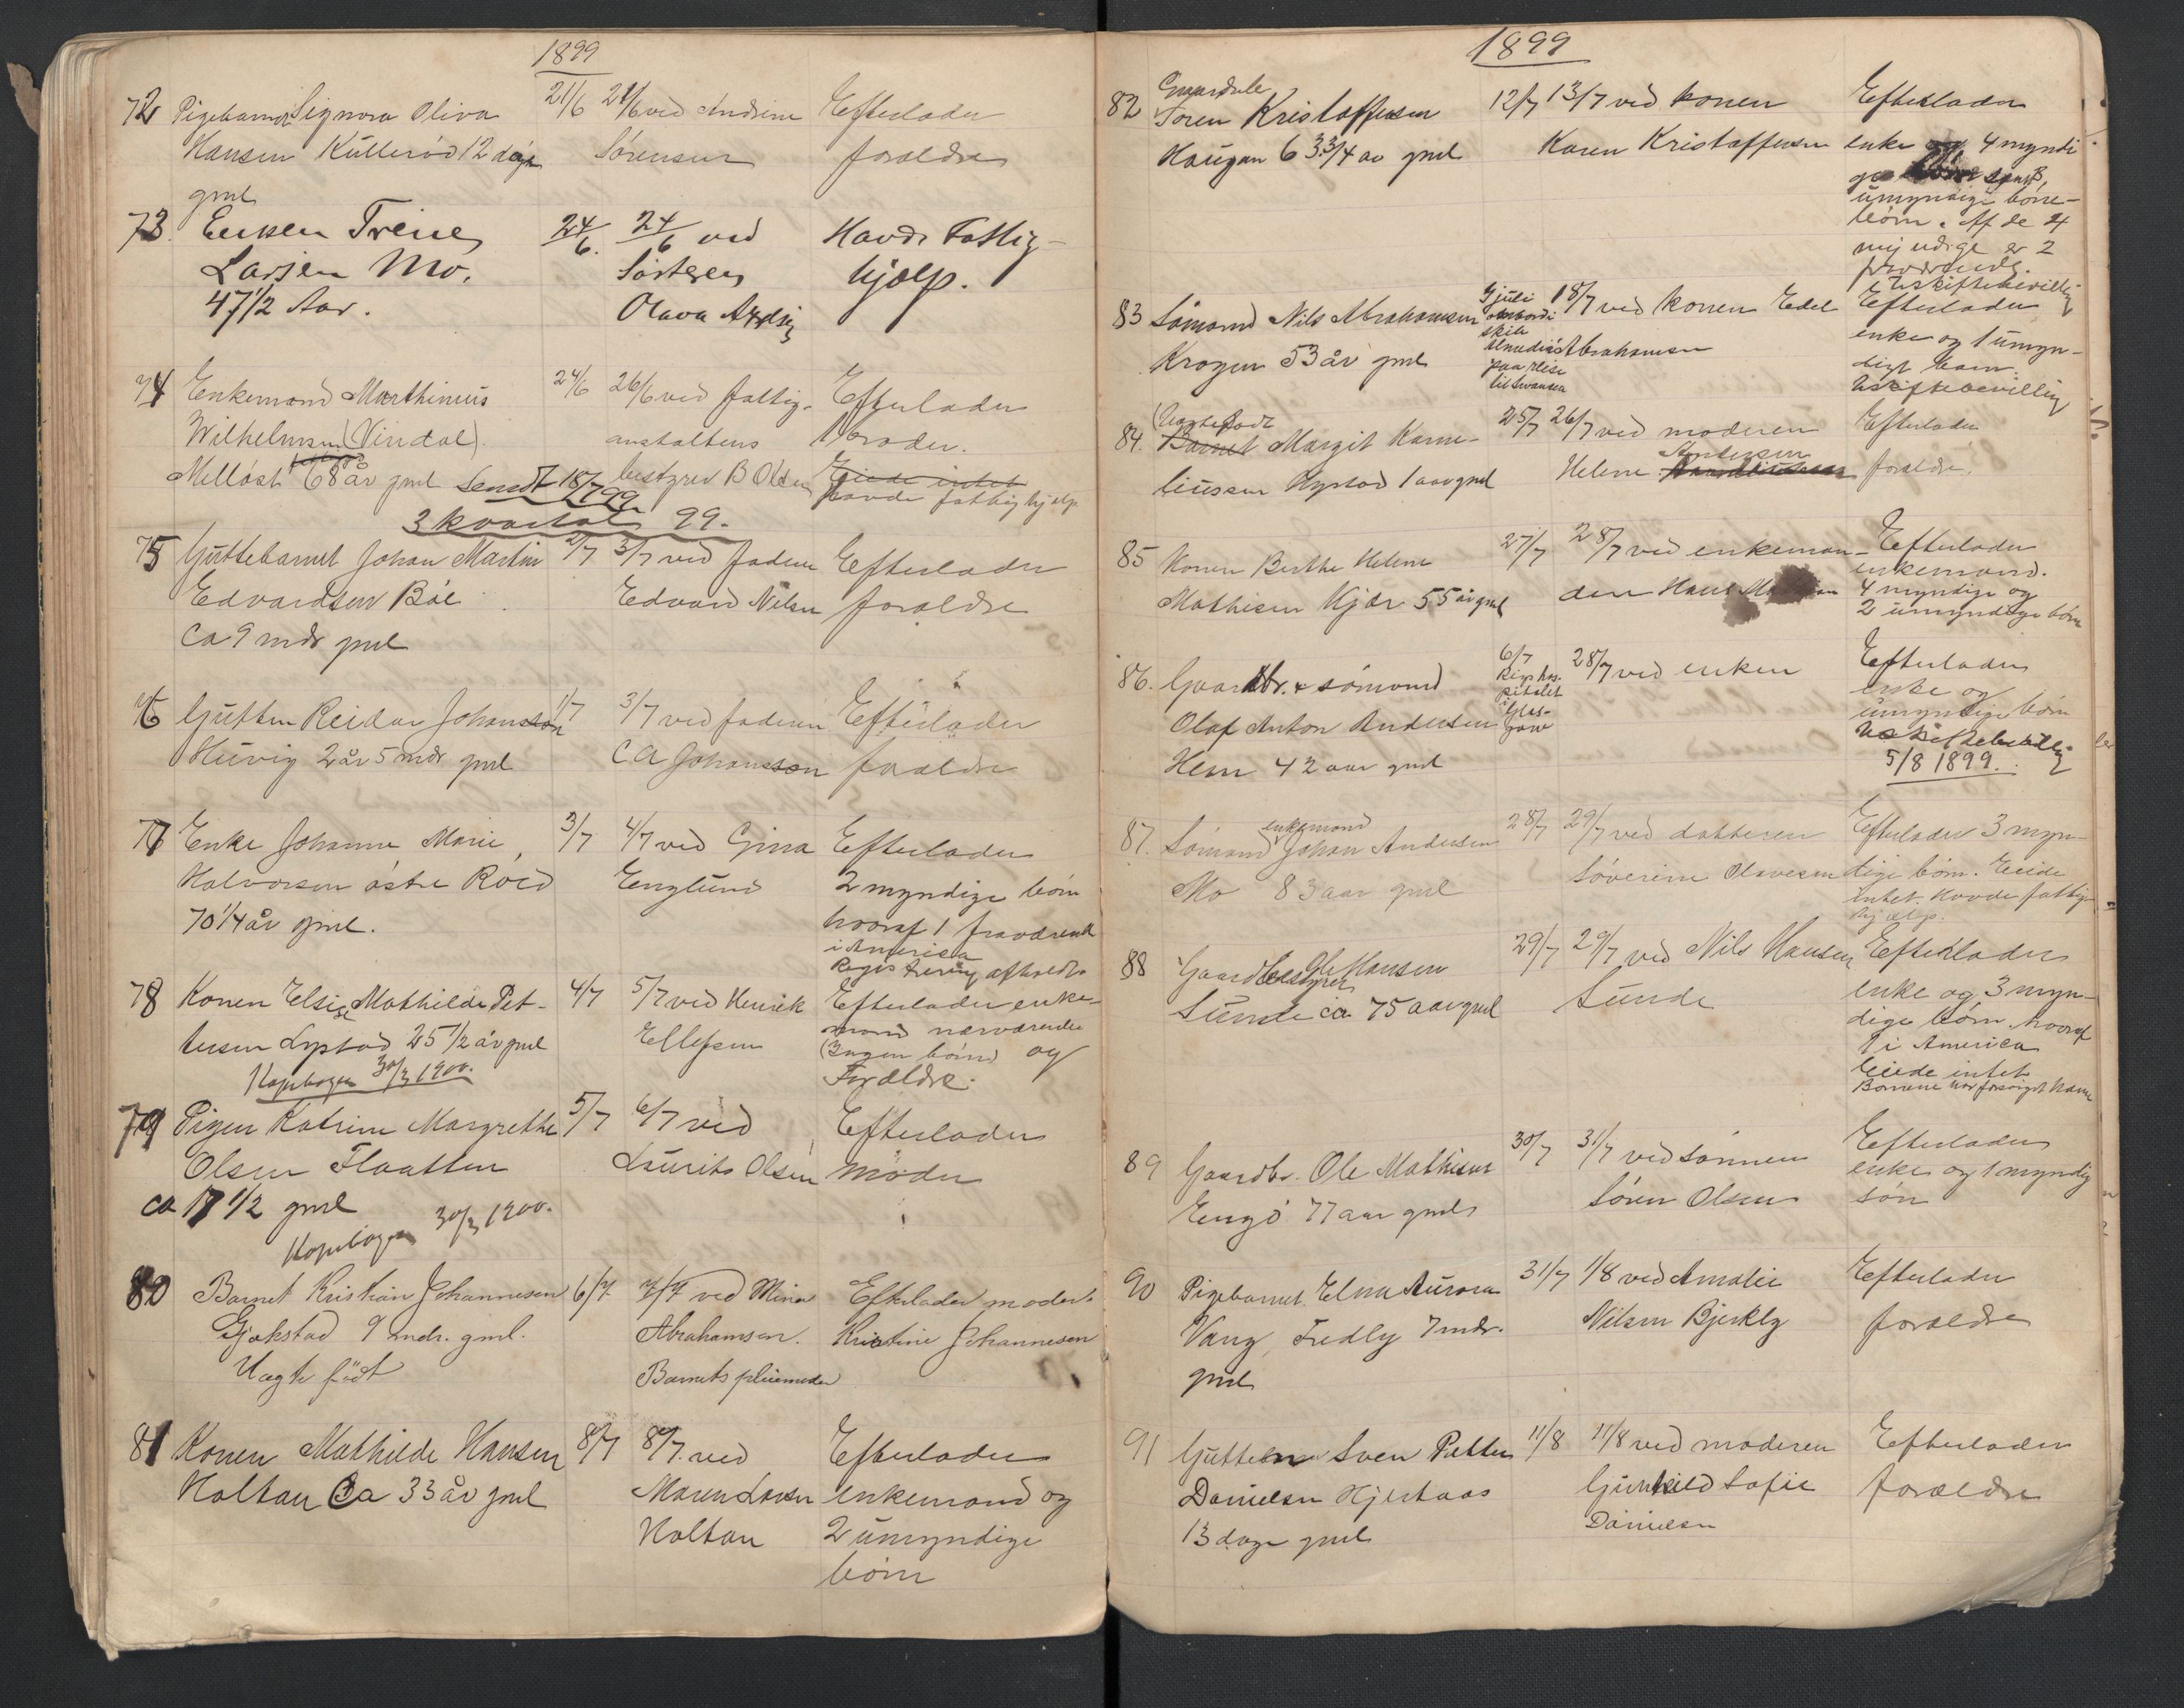 1899
72 Pigebarnet Signora Oliva 21/6 21/6 ved Andrine Efterlader
Hansen Kullerød 12 dage Sørensen forældre
gml
73. Enken Trine 24/6. 24/6 ved Havde Fattig-
Larsen Mo. Søsteren hjælp.
47 1/2 Aar. Olava
74 Enkemand Marthinius 24/6 26/6 ved fattig- Efterlader
Wilhelmsen (Vindal) anstaltens 1 broder.
Melløst 68 år gml bestyrer B Olsen Eiede intet
Sendt 18/7 99. havde fattighjælp
3 kvartal 99.
75 Guttebarnet Johan Martin 2/7 3/7 ved faderen Efterlader
Edvardsen Bøe Edvard Nilsen forældre
Ca 9 mdr gml
76 Gutten Reidar Johansson 1/7 3/7 ved faderen Efterlader
Huvig 2 år 5 mdr gml C A Johansson forældre
77 Enke Johanne Marie 3/7 4/7 ved Gina Efterlader
Halvorsen østre Røed Englund 2 myndige børn
70 1/4 år gml. hvoraf 1 fraværende
i America
Registrering afholdt
78 Konen Elsise Mathilde Pet- 4/7 5/7 ved Henrik Efterlader enke-
tersen Lystad 25 1/2 år gml Ellefsen mand nærværende
(Ingen børn) og
Kopibogen 30/3 1900. Forældre.
79 Pigen Katrine Margrethe 5/7 6/7 ved Efterlader
Olsen Flaatten Laurits Olsen moder
ca 17 1/2 gml
Kopibogen 30/3 1900.
80 Barnet Kristian Johannesen 6/7. 7/7 ved Mina Efterlader moder.
Gjøkstad 9 mdr. gml. Abrahamsen. Kristine Johannesen
Uægte født Barnets pleiemoder
81 Konen Mathilde Hansen 8/7 8/7. ved Efterlader
Holtan Ca 33 år gml Maren Larsen enkemand og
Holtan 2 umyndige
børn
1899
Gaardule
82 Søren Kristoffersen 12/7 13/7 ved konen Efterlader
Haugan 63 3/4 av gml Karen Kristoffersen enke og 4 myndi
ge
umyndige børne-
børn. Af de 4
myndige er 2
fraværende.
Uskiftebevilling
83 Sømand Nils Abrahamsen 9 juli ombord i skib paa reise til Swansea 18/7 ved konen Edel Efterlader
Krogen 53 år gml Abrahamsen enke og 1 umyn-
digt barn.
Uskiftebevilling
(Uægtefødt
84. Barnet Margit Karne- 25/7 26/7 ved moderen Efterlader
liussen Nystad 1 aar gml Helene Andersen forældre.
85 Konen Berthe Helene 27/7 28/7 ved enkeman- Efterlader
Mathisen Kjær 55 år gml den Hans enkemand.
4 myndige og
2 umyndige børn
86. Gaardbr. & sømand 6/7 Rigshospitalet i Glasgow 28/7 ved enken Efterlader
Olaf Anton Andersen enke og
Hem 42 aar gml umyndige børn
Uskiftebevilling
5/8 1899.
87. Sømand enkemand Johan Andersen 28/7 29/7 ved datteren Efterlader 3 myn-
Mo 83 aar gml Søverine Olavesen dige børn. Eiede
intet. Havde fattig-
hjælp.
88 Gaardbestyrer Ole Hansen 29/7 29/7 ved Nils Hansen Efterlader
Sunde ca 75 aar gml Sunde enke og 3 myn-
dige børn, hvoraf
1 i America
Eiede intet
Børnene har forsørget ham
89 Gaardbr. Ole Mathisen 30/7 31/7 ved sønnen Efterlader
Engø 77 aar gml Søren Olsen enke og 1 myndig
søn
90 Pigebarnet Elna Aurora 31/7 1/8 ved Amalie Efterlader
Vang, Fredly 7 mdr. Nilsen Bjerkly forældre
gml
91 Gutten Sven Petter 11/8 11/8 ved moderen Efterlader
Danielsen Hjertaas Gunhild Sofie forældre
13 dage gml Danielsen